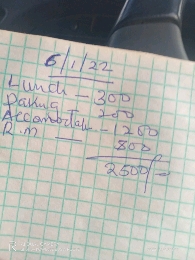 6/1/22
Lunch - 300
Paking 200
Accomodation - 1200
R.m - 800
2500/-